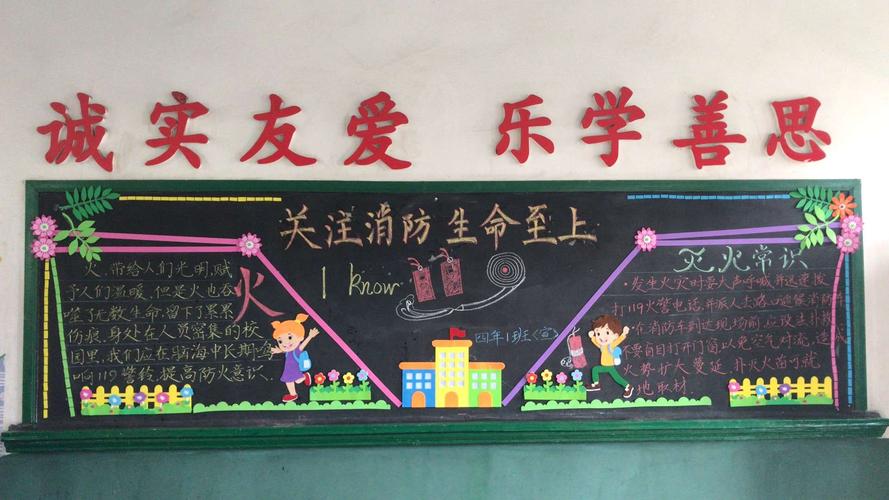 诚实友爱 乐学善思
关注消防生命至上
I know
火
火,带给人们光明,赋
予人们温暖,但是火也吞
噬了无数生命,留下了累累
伤痕,身处在人员密集的校
园里,我们应在脑海中长期
响119警铃,提高防火意识.
四年1班<宣>
灭火常识
发生火灾时要大声呼喊并迅速拨
打119火警电话,并派人去路口迎候消防车
在消防车到达现场前,应设法扑救
不要盲目打开门窗以免空气对流,造
火势扩大蔓延,扑灭火苗可就
地取材